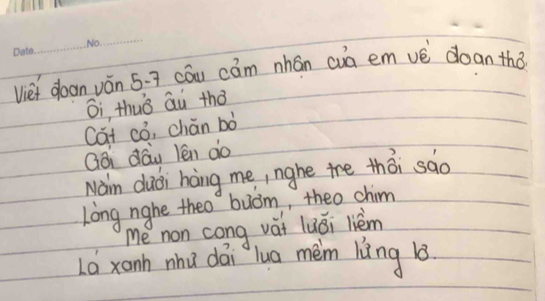 Date...............No.............
Viết đoạn văn 5-7 câu cảm nhận của em về đoạn thơ
Ôi, thuở ấu thơ
Cắt cỏ, chăn bò
Gối đầu lên áo
Nằm dưới hàng me, nghe tre thổi sáo
Lòng nghe theo bướm, theo chim
Me non cong vắt lưỡi liềm
Lá xanh như dải lụa mềm lửng lơ.